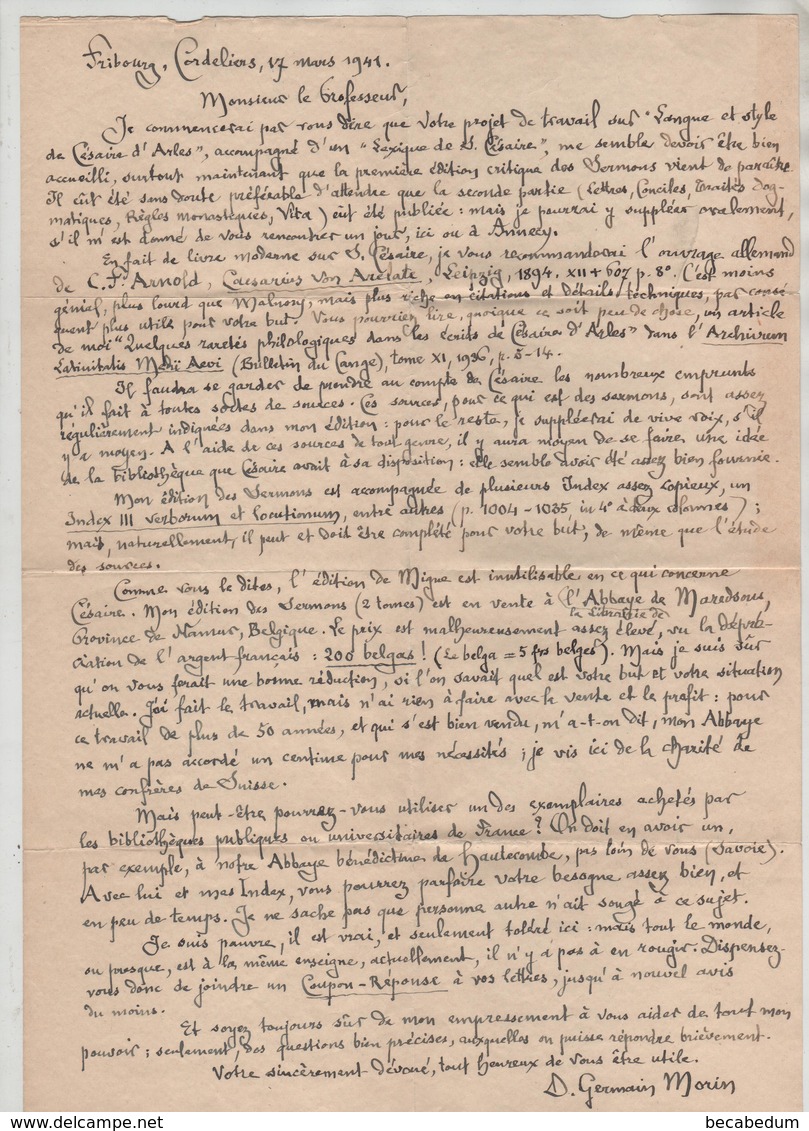 Fribourg, Cordeliers, 17 mars 1941.
Monsieur le Professeur,
Je commencerai par vous dire que votre projet de travail sur "Langue et style
de Césaire d'Arles", accompagné d'un "Lexique de S. Césaire", me semble devoir être bien
accueilli, surtout maintenant que la première édition critique des Sermons vient de paraître.
Il eût été sans doute préférable d'attendre que la seconde partie (Lettres, Conciles, Traités Dog-
matiques, Règles monastiques, Vita) eût été publiée : mais je pourrai y suppléer oralement,
s'il m'est donné de vous rencontrer un jour, ici ou à Annecy.
En fait de livre moderne sur S. Césaire, je vous recommanderai l'ouvrage allemand
de C. Fr. Arnold, Caesarius von Arelate, Leipzig, 1894, XII + 607 p. 8°. C'est moins
génial, plus lourd que Malnory, mais plus riche en citations et détails techniques, par consé-
quent plus utile pour votre but. Vous pourriez lire, quoique ce soit peu de chose, un article
de moi "Quelques raretés philologiques dans les écrits de Césaire d'Arles" dans l'Archivum
Latinitatis Medii Aevi (Bulletin du Cange), tome XI, 1936, p. 5-14.
Il faudra se garder de prendre au compte de Césaire les nombreux emprunts
qu'il fait à toutes sortes de sources. Ces sources, pour ce qui est des sermons, sont assez
régulièrement indiquées dans mon édition : pour le reste, je suppléerai de vive voix, s'il
y a moyen. A l'aide de ces sources de tout genre, il y aura moyen de se faire une idée
de la Bibliothèque que Césaire avait à sa disposition : elle semble avoir été assez bien fournie.
Mon édition des Sermons est accompagnée de plusieurs Index assez copieux, un
Index III verborum et locutionum, entre autres (p. 1004-1035, in 4° à deux colonnes) ;
mais, naturellement, il peut et doit être complété pour votre but, de même que l'étude
des sources.
Comme vous le dites, l'édition de Migne est inutilisable en ce qui concerne
Césaire. Mon édition des Sermons (2 tomes) est en vente à l'Abbaye de Maredsous,
la Librairie de
Province de Namur, Belgique. Le prix est malheureusement assez élevé, vu la dépré-
ciation de l'argent français : 200 belgas ! (Le belga = 5 frs belges). Mais je suis sûr
qu'on vous ferait une bonne réduction, si l'on savait quel est votre but et votre situation
actuelle. J'ai fait le travail, mais n'ai rien à faire avec la vente et le profit : pour
ce travail de plus de 50 années, et qui s'est bien vendu, m'a-t-on dit, mon Abbaye
ne m'a pas accordé un centime pour mes nécessités ; je vis ici de la charité de
mes confrères de Suisse.
Mais peut-être pourrez-vous utiliser un des exemplaires achetés par
les bibliothèques publiques ou universitaires de France ? On doit en avoir un,
par exemple, à notre Abbaye bénédictine de Hautecombe, près loin de vous (Savoie).
Avec lui et mes Index, vous pourrez parfaire votre besogne assez bien, et
en peu de temps. Je ne sache pas que personne autre n'ait songé à ce sujet.
Je suis pauvre, il est vrai, et seulement toléré ici : mais tout le monde,
ou presque, est à la même enseigne, actuellement, il n'y a pas à en rougir. Dispensez-
vous donc de joindre un Coupon-Réponse à vos lettres, jusqu'à nouvel avis
du moins.
Et soyez toujours sûr de mon empressement à vous aider de tout mon
pouvoir ; seulement, des questions bien précises, auxquelles on puisse répondre brièvement.
Votre sincèrement dévoué, tout heureux de vous être utile.
D. Germain Morin
becabedum - www.delcampe.net